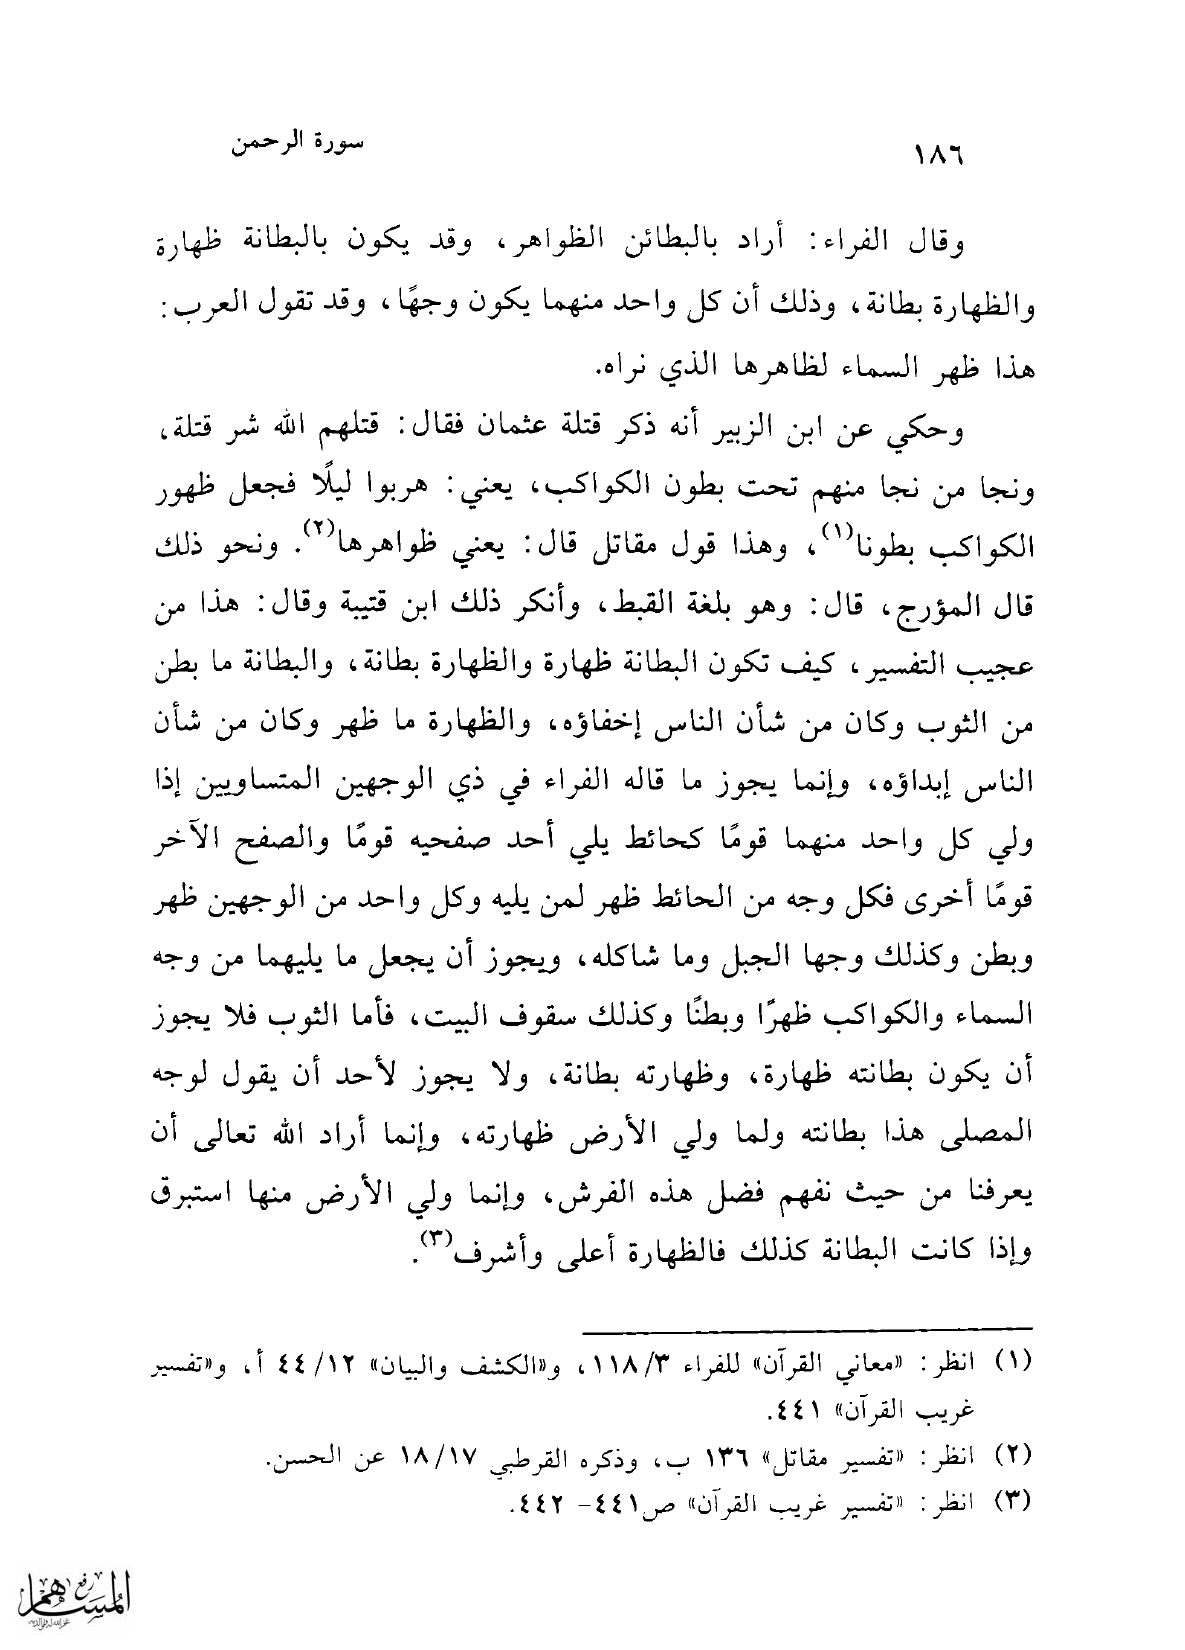 ١٨٦ سورة الرحمن
وقال الفراء: أراد بالبطائن الظواهر، وقد يكون بالبطانة ظهارة
والظهارة بطانة، وذلك أن كل واحد منهما يكون وجهًا، وقد تقول العرب:
هذا ظهر السماء لظاهرها الذي نراه.
وحكي عن ابن الزبير أنه ذكر قتلة عثمان فقال: قتلهم الله شر قتلة،
ونجا من نجا منهم تحت بطون الكواكب، يعني: هربوا ليلًا فجعل ظهور
الكواكب بطونا(١)، وهذا قول مقاتل قال: يعني ظواهرها(٢). ونحو ذلك
قال المؤرج، قال: وهو بلغة القبط، وأنكر ذلك ابن قتيبة وقال: هذا من
عجيب التفسير، كيف تكون البطانة ظهارة والظهارة بطانة، والبطانة ما بطن
من الثوب وكان من شأن الناس إخفاؤه، والظهارة ما ظهر وكان من شأن
الناس إبداؤه، وإنما يجوز ما قاله الفراء في ذي الوجهين المتساويين إذا
ولي كل واحد منهما قومًا كحائط يلي أحد صفحيه قومًا والصفح الآخر
قومًا أخرى فكل وجه من الحائط ظهر لمن يليه وكل واحد من الوجهين ظهر
وبطن وكذلك وجها الجبل وما شاكله، ويجوز أن يجعل ما يليهما من وجه
السماء والكواكب ظهرًا وبطنًا وكذلك سقوف البيت، فأما الثوب فلا يجوز
أن يكون بطانته ظهارة، وظهارته بطانة، ولا يجوز لأحد أن يقول لوجه
المصلى هذا بطانته ولما ولي الأرض ظهارته، وإنما أراد الله تعالى أن
يعرفنا من حيث نفهم فضل هذه الفرش، وإنما ولي الأرض منها استبرق
وإذا كانت البطانة كذلك فالظهارة أعلى وأشرف(٣).
(١) انظر: «معاني القرآن» للفراء ٣/١١٨، و«الكشف والبيان» ١٢/٤٤ أ، و«تفسير
غريب القرآن» ٤٤١.
(٢) انظر: «تفسير مقاتل» ١٣٦ ب، وذكره القرطبي ١٧/١٨ عن الحسن.
(٣) انظر: «تفسير غريب القرآن» ص٤٤١- ٤٤٢.